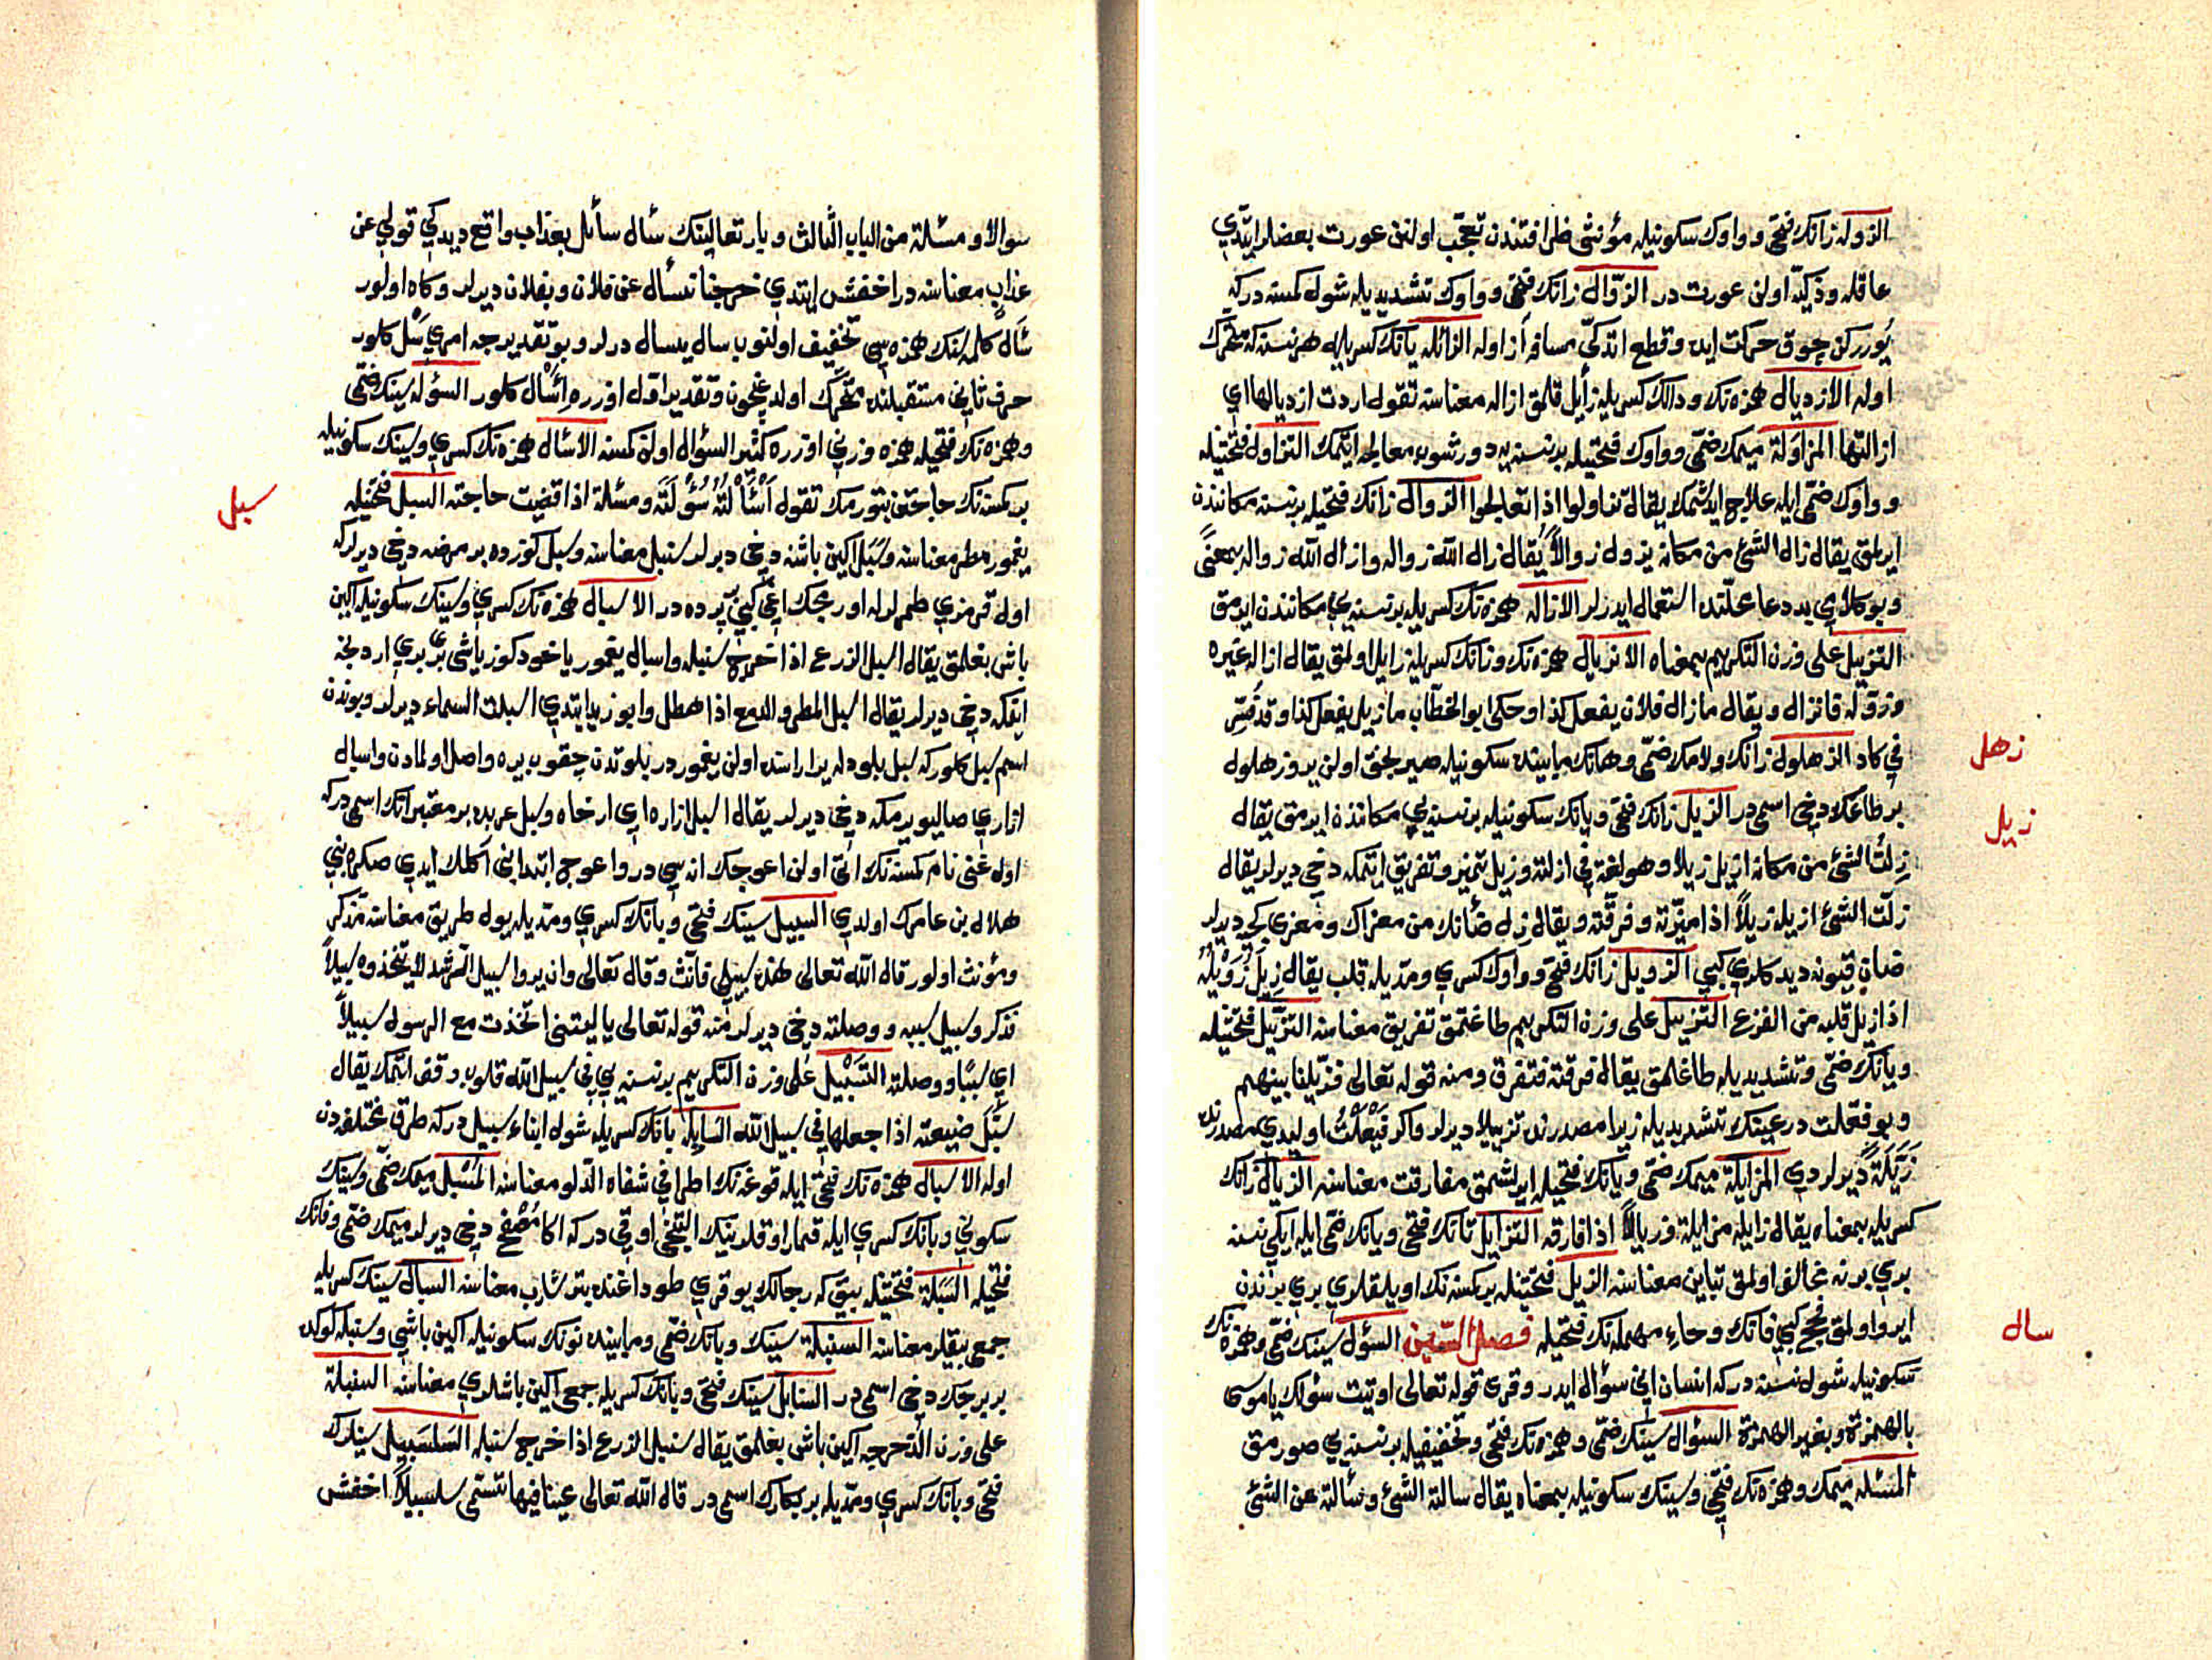 الزوله زانك فتحی و واوك سكونیله مؤنثی ظرافتندن تعجب اولنن عورت بعضلر ایتدی
عاقله و ذكیّه اولن عورت در الزوّال زانك فتحی و واوك تشدیدیله شول كمسنه دركه
یوررکن چوق حرکت ایده و قطع اتدكی مسافه از اوله الزائله یانك كسریله هر نسنه كه متحرك
اوله الازدیال همزه نك ودالك كسریله زایل قلمق ازاله معناسنه تقول اردت ازدیالها ای
ازالتها المزاولة میمك ضمی و واوك فتحیله بر نسنه یه دورشوب معالجه ایتمك التزاول فتحتیله
و واوك ضمی ایله علاج ایدشمك یقال تزاولوا اذا تعالجوا الزوال زانك فتحیله بر نسنه مكانندن
ایرلمق یقال زال الشئ من مكانه یزول زوالاً یقال زال الله زواله وازال الله زواله بمعنًی
وبو كلامی بد دعا محلنده استعمال ایدرلر الازاله همزه نك كسریله بر نسنه یی مكانندن ایرمق
التزییل علی وزن التكریم بمعناه الانزیال همزه نك وزانك كسریله زایل اولمق یقال ازاله غیره
وزوّله فانزال ویقال مازال فلان یفعل كذا وحكی ابو الخطّاب مازیل یفعل كذا وقد فسّر
فی كاد الزهلول زانك ولامك ضمی وهانك مابینده سكونیله صیرلجق اولن یر وزهلول
بر طاغك دخی اسمی در الزیل زانك فتحی ویانك سكونیله بر نسنه یی مكانندن ایرمق یقال
زلت الشئ من مكانه ازیل زیلا وهو لغة فی ازلته وزیل تمیز وتفریق ایتمكه دخی دیرلر یقال
زلت الشئ ازیله زیلاً اذا میّزته وفرقته ویقال زل ضأنك من معزاك ومعزی كچی دیرلر
ضان قیونه دیدكلری كبی الزویل زانك فتحی و واوك كسری ومدیله قلب یقال زیل زویله
اذا زیل قلبه من الفزع التزییل علی وزن التكریم طاغتمق تفریق معناسنه التزیّل فتحتیله
ویانك ضمی وتشدیدیله طاغلمق یقال فرقته فتفرق ومنه قوله تعالی فزیّلنا بینهم
وبو فعّلت در عینك تشدیدیله زیرا مصدرنده تزییلا دیرلر واكر فیعلت اولیدی مصدرنده
زیّلة دیرلردی المزایلة میمك ضمی ویانك فتحیله ایرلشمق مفارقت معناسنه الزیال زانك
كسریله بمعناه یقال زایله مزایلة وزیالاً اذا فارقه التزایل تانك فتحی ویانك ضمی ایله ایكی نسنه
بری برنه مخالف اولمق تباین معناسنه الزیل فتحتیله بر كمسنه نك اویلقلری بری برندن
ایرو اولمق فحج كبی فانك وحاء مهمله نك فتحیله فصل السّین السؤل سینك ضمی وهمزه نك
سكونیله شول نسنه دركه انسان انی سؤال ایدر وقری قوله تعالی اوتیت سؤلك یا موسی
بالهمزة وبغیر الهمزة السؤال سینك ضمی وهمزه نك فتحی وتخفیفیله بر نسنه یی صورمق
المسئله میمك وهمزه نك فتحی وسینك سكونیله بمعناه یقال سالته الشئ وسألته عن الشئ
زهل
زیل
سال
سوالا ومسئلة من الباب الثالث وباری تعالینك سأل سائل بعذاب واقع دیدكی قولی عن
عذاب معناسنه در اخفش ایتدی خرجنا نسأل عن فلان وبفلان دیرلر وكاه اولور
سأل كلمه سنك همزه سی تخفیف اولنوب سال یسال درلر وبو تقدیرجه امری سَل كلور
حرف ثانی مستقبلنده متحرك اولدیغیچون وتقدیر اول اوزره اِسْأل كلور السؤله سینك ضمی
وهمزه نك فتحیله همزه وزنی اوزره كثیر السؤال اولن كمسنه الاسأل همزه نك كسری وسینك سكونیله
بر كمسنه نك حاجتن بتورمك تقول اسألته سؤلته ومسئلة اذا قضیت حاجته السبل فتحتیله
یغمور مطر معناسنه وسبل اكین باشنه دخی دیرلر سنبل معناسنه وسبل كوزده بر مرضه دخی دیرلركه
اول قرمزی طمرلرله اورمجك اغی كبی پرده در الاسبال همزه نك كسری وسینك سكونیله اكین
باش بغلمق یقال اسبل الزرع اذا خرج سنبله واسبال یغمور یاخود كوز یاشی بری بری اردنجه
ایتمكه دخی دیرلر یقال اسبل المطر والدمع اذا هطل وابو زید ایتدی اسبلت السماء دیرلر وبوندن
اسم سبل كلوركه سبل بلودله یر اراسنده اولن یغموردر بلوتدن چقوب یره واصل اولمادن واسبال
ازاری صالیویرمكه دخی دیرلر یقال اسبل ازاره ای ارخاه وسبل عربده بر معتبر اتك اسمی دركه
اول غنی نام كمسنه نك اتی اولن اعوجك اناسی در واعوج ابتدا بنی آكلك ایدی صكره بنی
هلال بن عامرك اولدی السبیل سینك فتحی وبانك كسری ومدیله یول طریق معناسنه مذكر
ومؤنث اولور قال الله تعالی هذه سبیلی فانّث وقال تعالی وان یروا سبیل الرشد لا یتخذوه سبیلاً
فذكر وسبیل سببه ووصلته دخی دیرلر منه قوله تعالی یا لیتنی اتخذت مع الرسول سبیلاً
ای سببا ووصلة التسبیل علی وزن التكریم بر نسنه یی فی سبیل الله قلوب وقف ایتمك یقال
سبّل ضیعته اذا جعلها فی سبیل الله السابله بانك كسریله شول ابناء سبیل دركه طرق مختلفه دن
اوله الاسبال همزه نك فتحی ایله قوغه نك اطرافی شفاه الدلو معناسنه المسبل میمك ضمی وسینك
سكونی وبانك كسری ایله قمار اوقلرینك التنجی اوقی دركه اكا مصفح دخی دیرلر میمك ضمی وفانك
فتحیله السبلة فتحتیله بیق كه رجالك یوقری طوداغنده بتر شارب معناسنه السبال سینك كسریله
جمعی بیقلر معناسنه السنبلة سینك وبانك ضمی ومابینده نونك سكونیله اكین باشی وسنبله كوكده
بر برجك دخی اسمی در السنابل سینك فتحی وبانك كسریله جمعی اكین باشلری معناسنه السنبلة
علی وزن الدحرجه اكین باش بغلمق یقال سنبل الزرع اذا خرج سنبله السلسبیل سینلرك
فتحی وبانك كسری ومدیله بر بیكارك اسمی در قال الله تعالی عینا فیها تسمّی سلسبیلاً اخفش
سبل